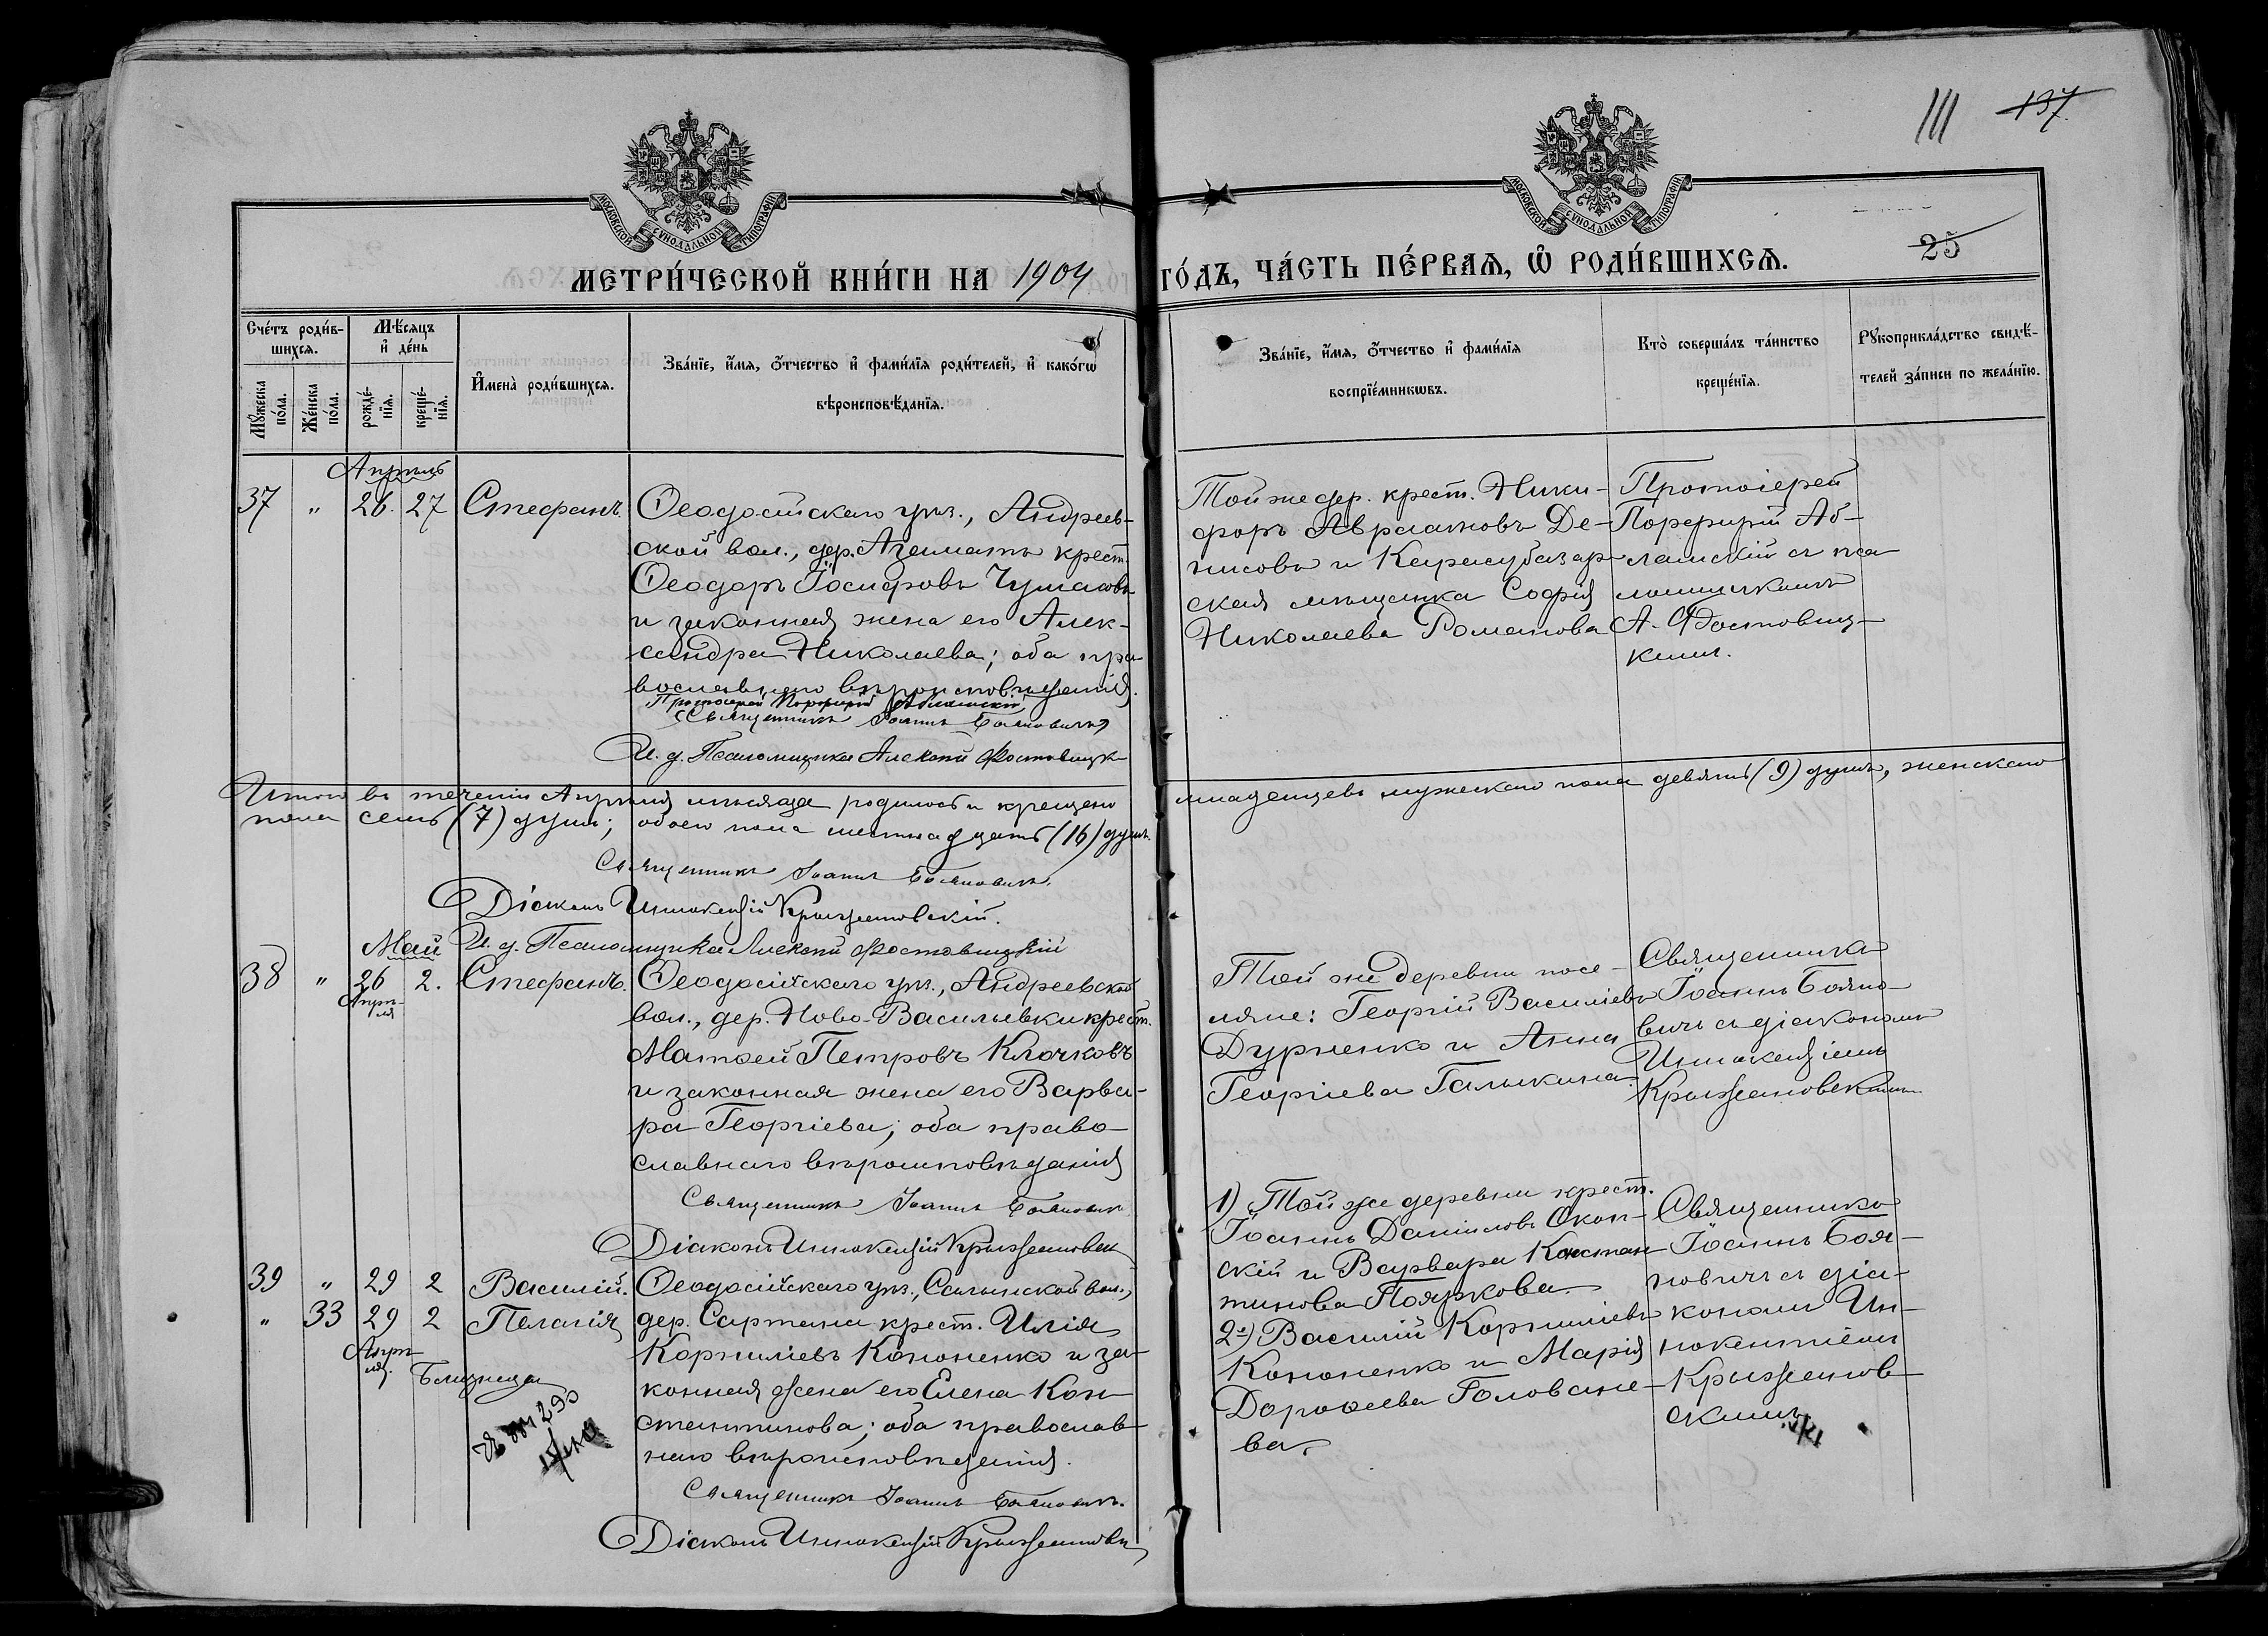 111 137.
МОСКОВСКОЙ СѴНОДАЛЬНОЙ ТИПОГРАФІИ
МОСКОВСКОЙ СѴНОДАЛЬНОЙ ТИПОГРАФІИ
25
МЕТРИ́ЧЕСКОЙ КНИ́ГИ НА 1904 ГО́ДЪ, ЧА́СТЬ ПЕ́РВАѦ, Ѽ РОДИ́ВШИХСѦ.
Сче́тъ роди́в-
шихсѧ.
Мꙋ́жеска по́ла.
Же́нска по́ла.
Мѣ́сѧцъ
и҆ де́нь
рожде́-
нїѧ.
креще́-
нїѧ.
И҆мена̀ роди́вшихсѧ.
Зва́нїе, и҆́мѧ, ѻ҆́тчество и҆ фами́лїѧ роди́телей, и҆ како́гѡ
вѣроисповѣ́данїѧ.
Зва́нїе, и҆́мѧ, ѻ҆́тчество и҆ фами́лїѧ
воспрїе́мникѡвъ.
Кто̀ соверша́лъ та́инство
креще́нїѧ.
Рꙋкоприкла́дство свидѣ́-
телей за́писи по жела́нїю.
Апрѣль
37 " 26. 27 Стефанъ.
Ѳеодосійскаго уѣз., Андреев-
ской вол., дер. Агъшатъ крест.
Ѳеодоръ Іосифовъ Чумаковъ
и законная жена его Алек-
сандра Николаева; оба пра-
вославнаго вѣроисповѣданія.
Протоіерей Порфирій Абламскій
Священникъ Іоаннъ Бояновичъ
И. д. Псаломщика Алексій Фостовицк
Той же дер. крест. Ники-
форъ Авраамовъ Де-
нисовъ и Карасубазар-
ская мѣщанка Софія
Николаева Романова
Протоіерей
Порфирій Аб-
ламскій съ пса
ломщикомъ
А. Фостовиц-
кимъ.
Итого въ теченіи Апрѣля мѣсяца родилось и крещено младенцевъ мужескаго пола девять (9) душъ, женскаго
пола семь (7) душъ; обоего пола шестнадцать (16) душъ.
Священникъ Іоаннъ Бояновичъ.
Діаконъ Иннокентій Крыжановскій.
И. д. Псаломщика Алексій Фостовицкій
Май
38 " 26 2. Стефанъ.
Апрѣ-
ля
Ѳеодосійскаго уѣз., Андреевской
вол., дер. Ново-Васильевки крест.
Матѳей Петровъ Клочковъ
и законная жена его Варва-
ра Георгіева; оба право-
славнаго вѣроисповѣданія
Священникъ Іоаннъ Бояновичъ
Діаконъ Иннокентій Крыжановск
Той же деревни посе-
ляне: Георгій Василіевъ
Дурненко и Анна
Георгіева Галыкина.
Священникъ
Іоаннъ Бояно-
вичъ съ діакономъ
Иннокентіемъ
Крыжановскимъ
39 " 29 2 Василій.
" 33 29 2 Пелагія
Апрѣ-
ля.
Близнецы
Ѳеодосійскаго уѣз., Салынской вол.,
дер. Сартана крест. Илія
Корниліевъ Кононенко и за-
конная жена его Елена Кон-
стантинова; оба православ-
наго вѣроисповѣданія.
Священникъ Іоаннъ Бояновичъ.
Діаконъ Иннокентій Крыжановск
1) Той же деревни крест.
Іоаннъ Даніиловъ Скоп-
скій и Варвара Констан-
тинова Пояркова.
2е) Василій Корниліевъ
Кононенко и Марія
Дороѳеева Головане-
ва.
Священникъ
Іоаннъ Боя-
новичъ съ діа-
кономъ Ин-
нокентіемъ
Крыжанов-
скимъ